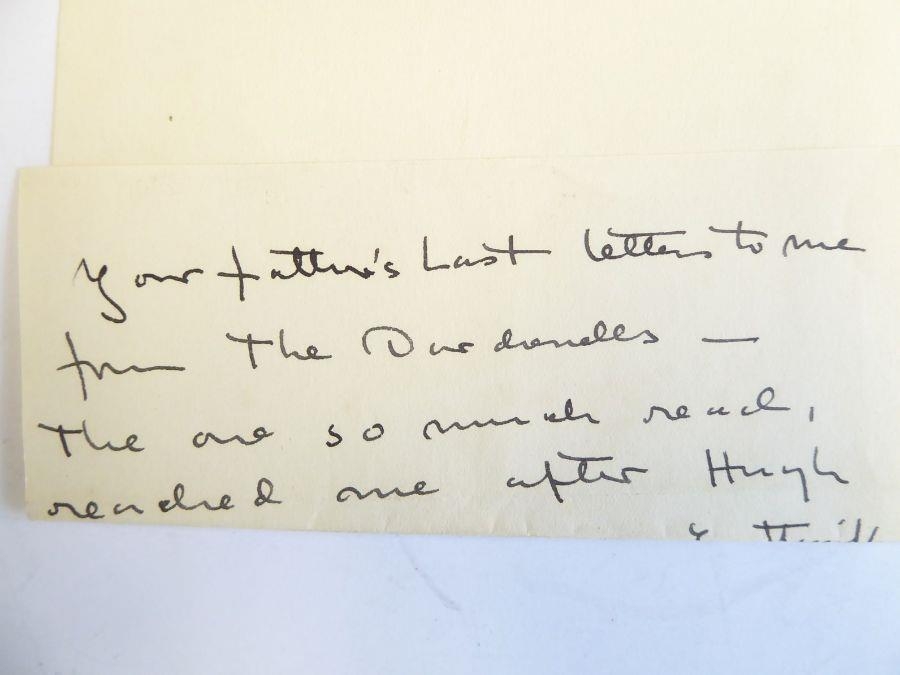 Your father's Last letters to me
from The Dardanelles —
The one so much read,
reached me after Hugh